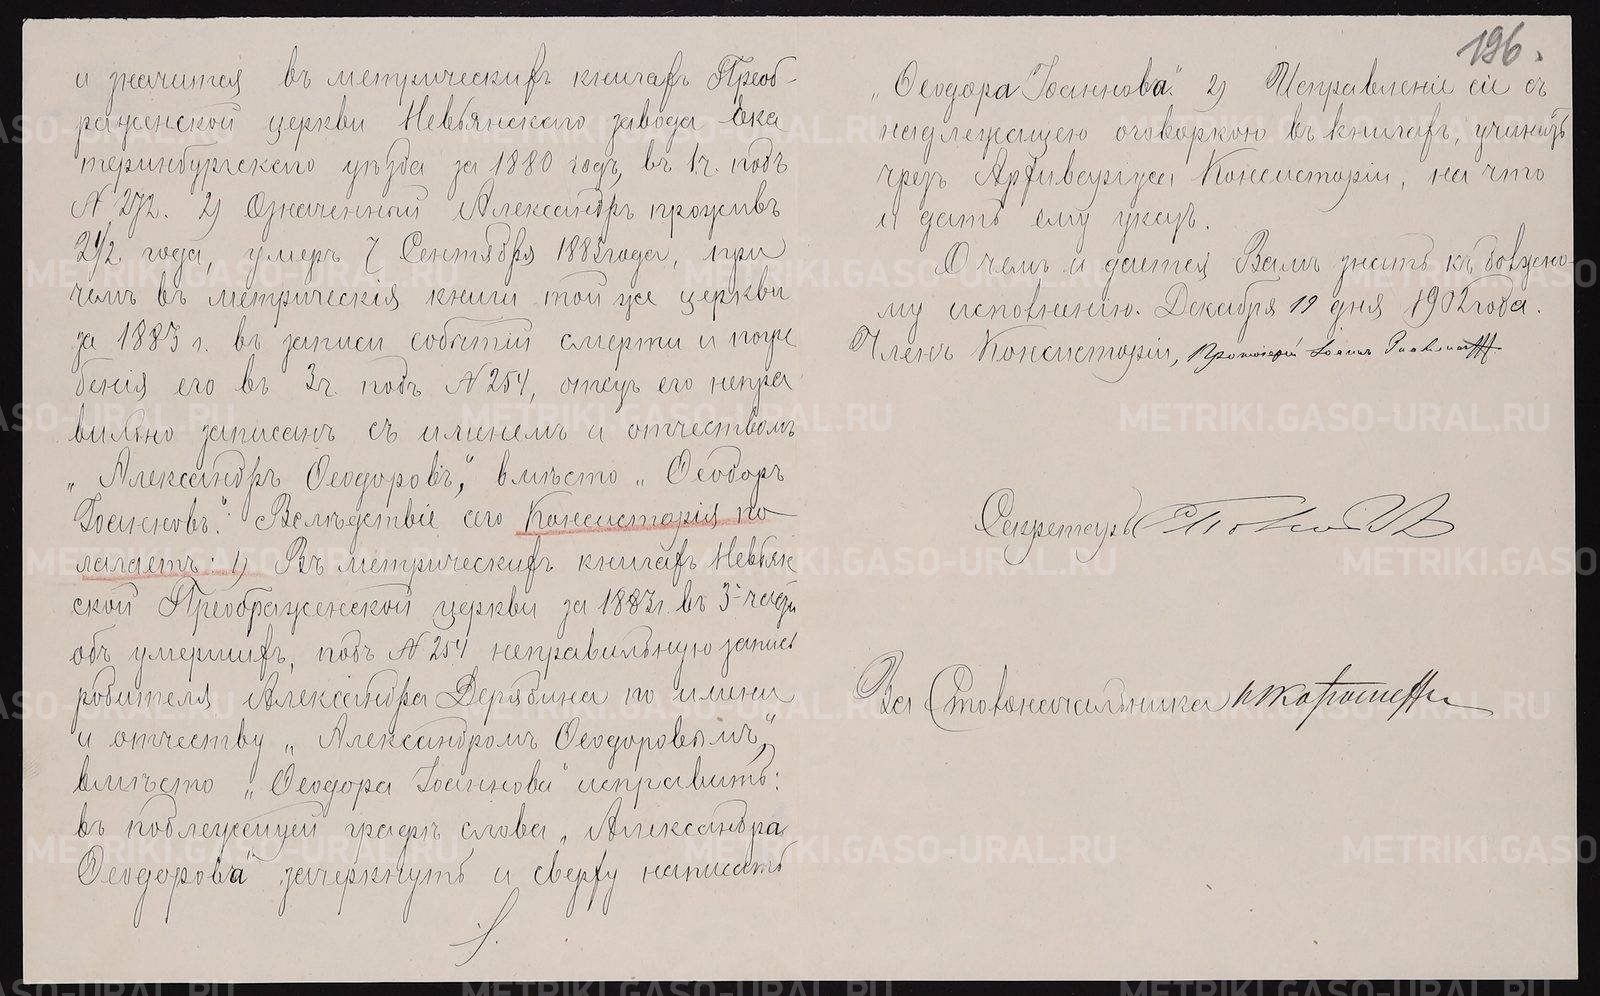 и значится въ метрическихъ книгахъ Преоб-
раженской церкви Невьянскаго завода Ека
теринбургскаго уѣзда за 1880 годъ, въ 1 ч. подъ
№ 272. 2) Означенный Александръ проживъ
2 1/2 года, умеръ 7 Сентября 1883 года, при
чемъ въ метрическія книги той же церкви
за 1883 г. въ записи событій смерти и погре
бенія его въ 3 ч. подъ № 254, отецъ его непра
вильно записанъ съ именемъ и отчествомъ
„Александръ Ѳеодоровъ", вмѣсто „Ѳеодоръ
Іоанновъ". Вслѣдствіе сего Консисторія по
лагаетъ: 1) Въ метрическихъ книгахъ Невьян
ской Преображенской церкви за 1883 г. въ 3-й части
объ умершихъ, подъ № 254 неправильную запись
родителя Александра Дерябина по имени
и отчеству „Александромъ Ѳеодоровымъ",
вмѣсто „Ѳеодора Іоаннова" исправить:
въ подлежащей графѣ слова „Александра
Ѳеодорова" зачеркнуть и сверху написать
196.
„Ѳеодора Іоаннова". 2) Исправленіе сіе съ
надлежащею оговоркою въ книгахъ, учинить
чрезъ Архиваріуса Консисторіи, на что
и дать ему указъ.
О чемъ и дается Вамъ знать къ должно-
му исполненію. Декабря 19 дня 1902 года.
Членъ Консисторіи, Протоіерей Іоаннъ
Секретарь
За Столоначальника
METRIKI.GASO-URAL.RU